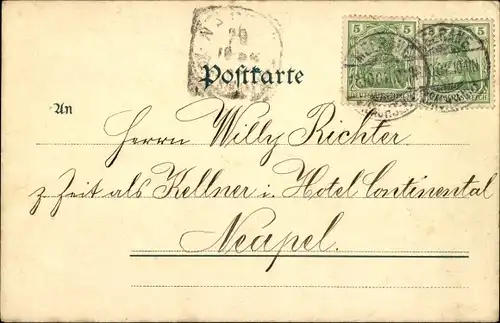 5 5 5
Postkarte
An
Herrn Willy Richter
z. Zeit als Kellner i. Hotel Continental
Neapel.